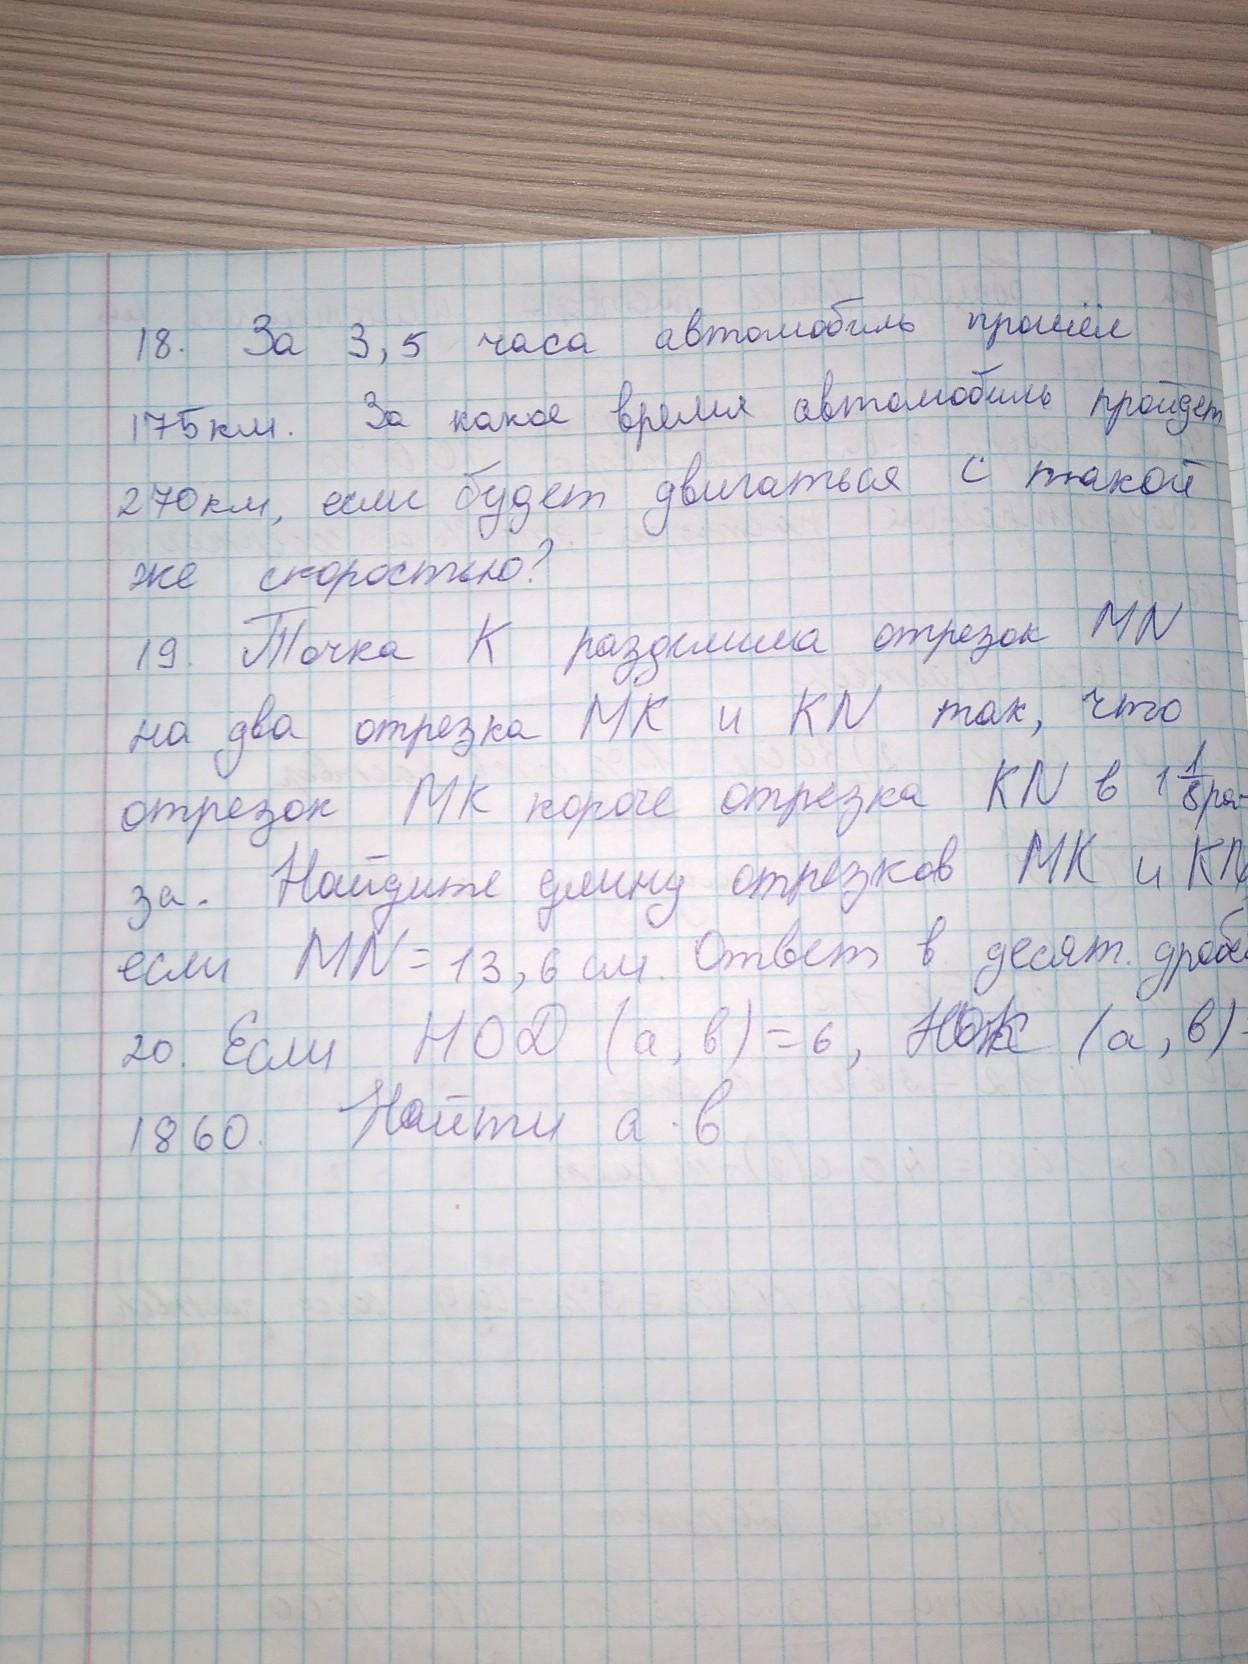 18. За 3,5 часа автомобиль прошёл
175км. За какое время автомобиль пройдет
270км, если будет двигаться с такой
же скоростью?
19. Точка К разделила отрезок MN
на два отрезка МК и KN так, что
отрезок МК короче отрезка KN в 1 1/8 ра-
за. Найдите длину отрезков МК и KN,
если MN = 13,6 см. Ответ в десят. дробе
20. Если НОД (а, в) = 6, НОК (а, в) =
1860. Найти а · в